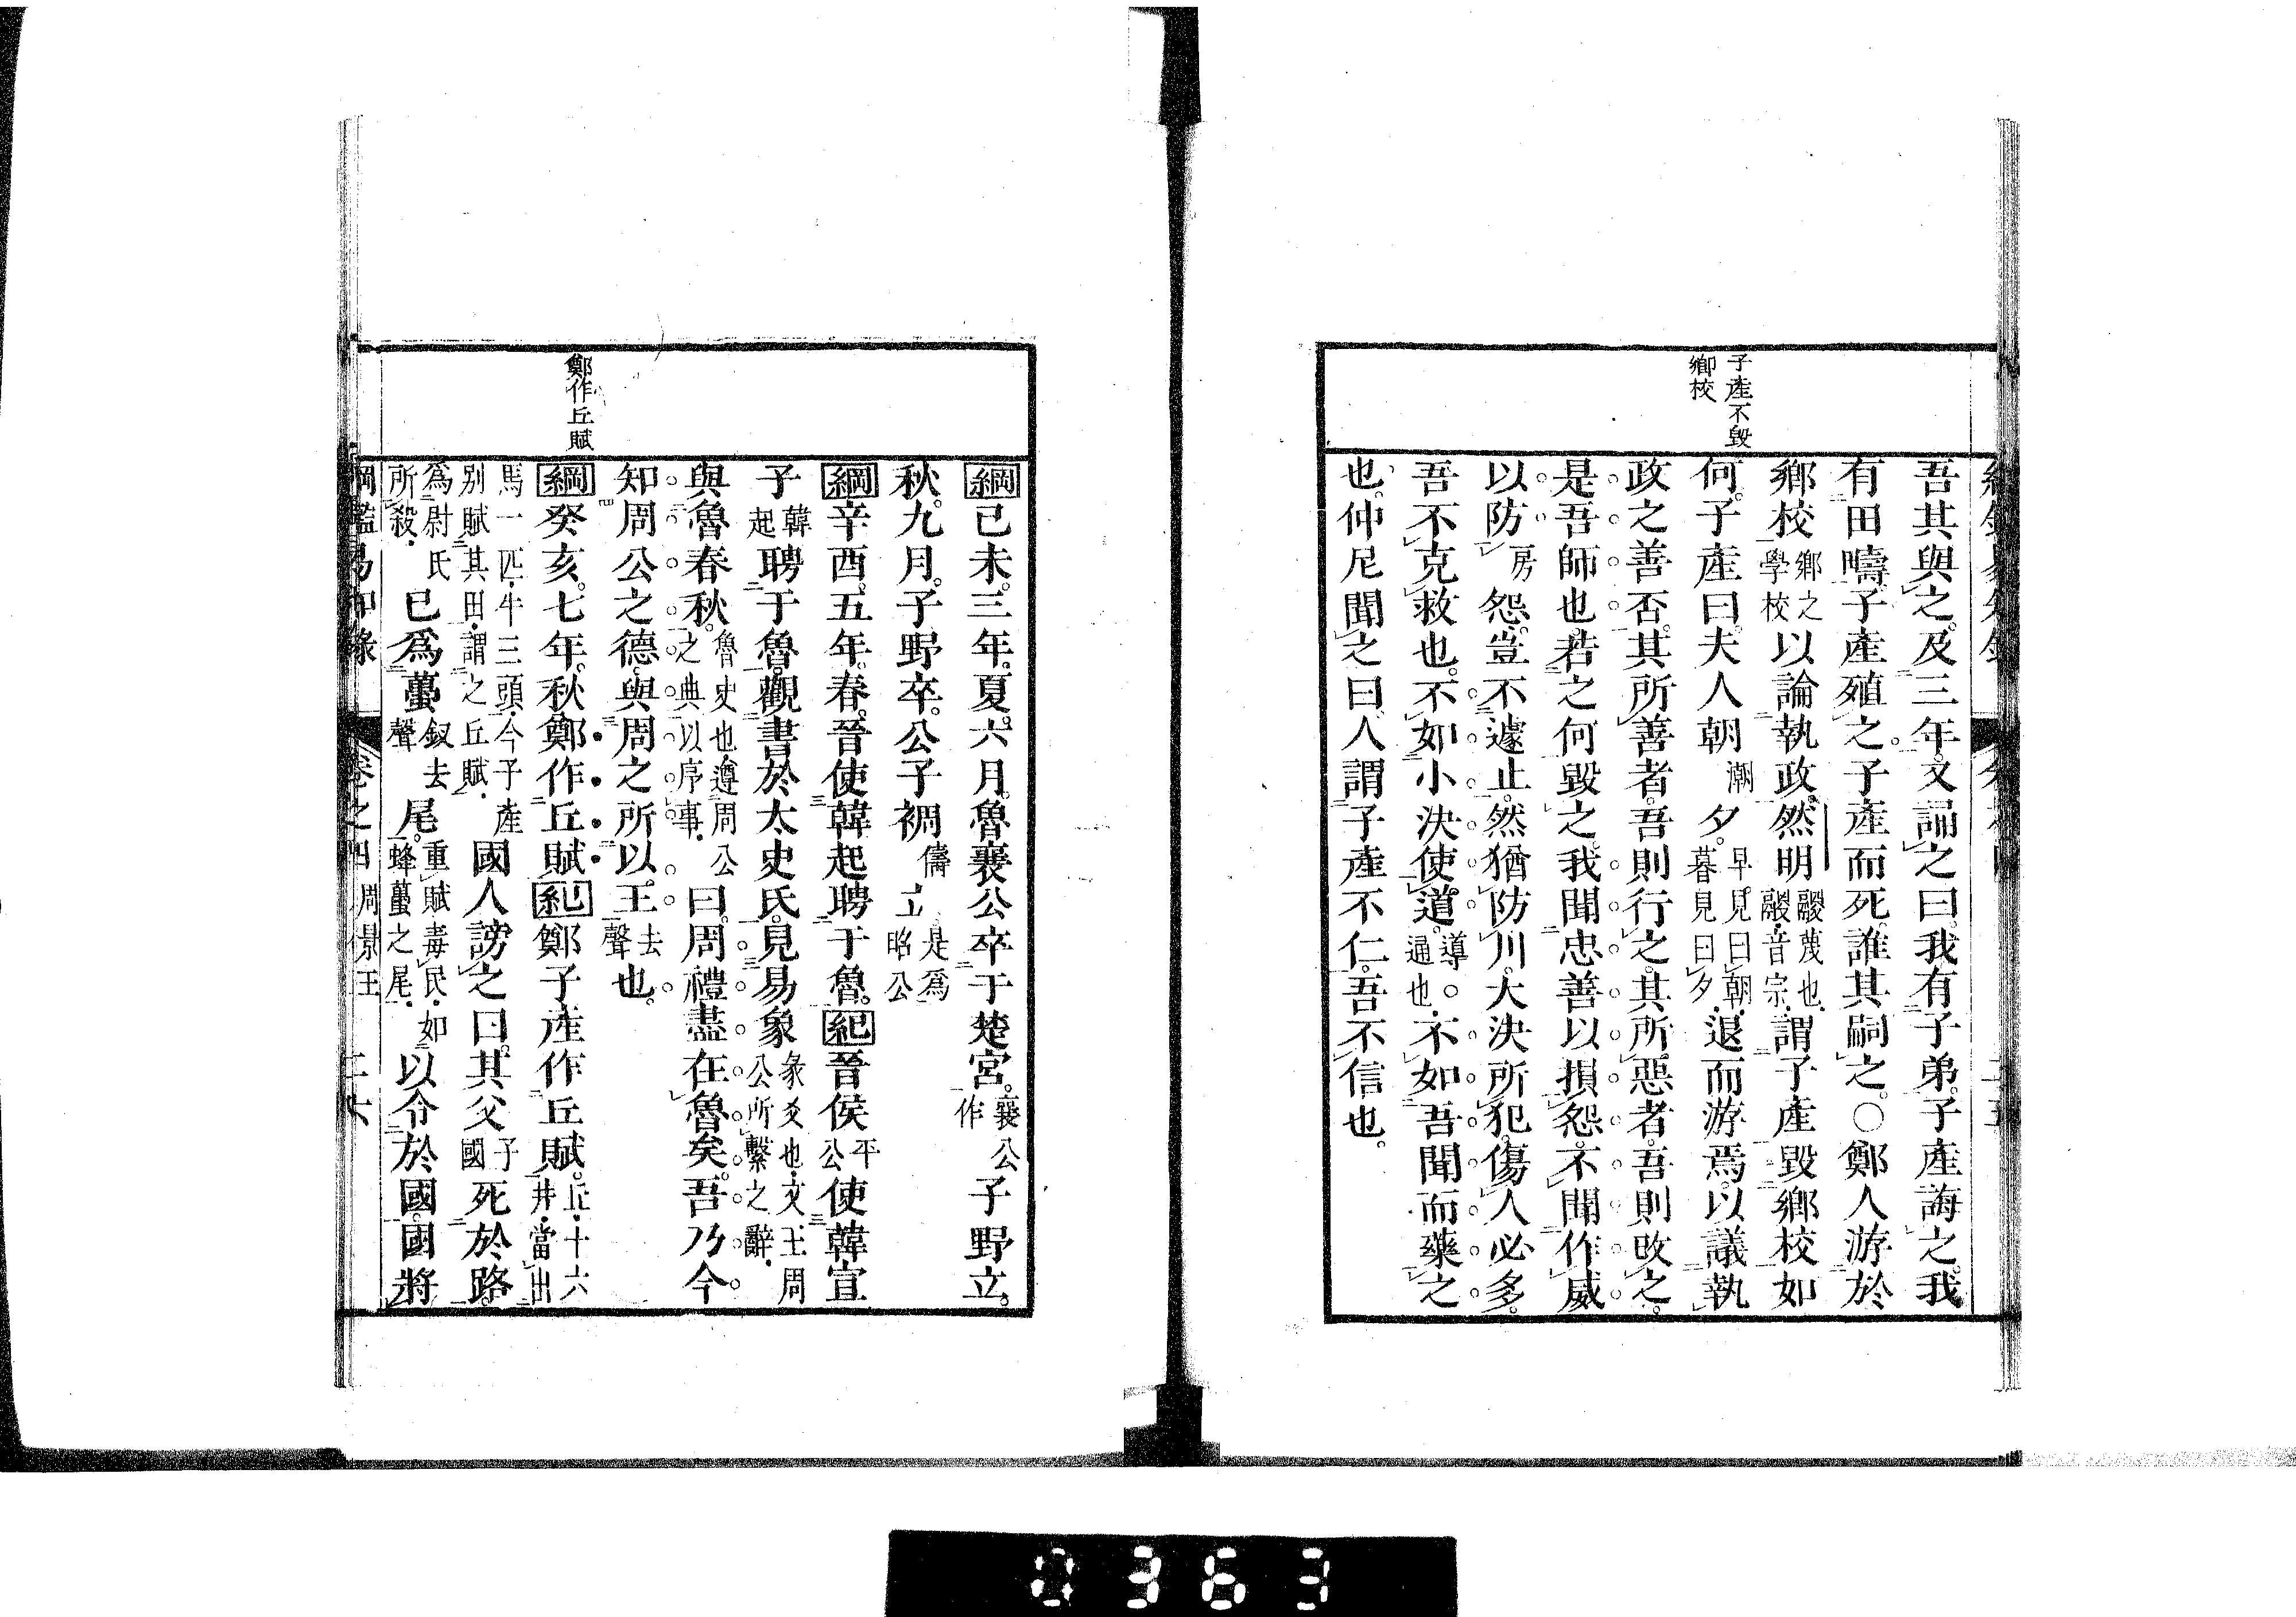 子產不毀
鄉校
吾其與之。及三年。又誦之曰。我有子弟。子產誨之。我
有田疇。子產殖之。子產而死。誰其嗣之。○鄭人游於
鄉校鄉之學校以論執政。然明鬷蔑也。鬷音宗。謂子產毀鄉校如
何。子產曰。夫人朝潮夕。早見曰朝。暮見曰夕。退而游焉。以議執
政之善否。其所善者。吾則行之。其所惡者。吾則改之。
是吾師也。若之何毀之。我聞忠善以損怨。不聞作威
以防房怨。豈不遽止。然猶防川。大決所犯。傷人必多。
吾不克救也。不如小決使道。導○通也。不如吾聞而藥之
也。仲尼聞之曰。人謂子產不仁。吾不信也。
鄭作丘賦
綱己未。三年。夏。六月。魯襄公卒于楚宮。襄公作子野立。
秋。九月。子野卒。公子裯儔立是爲昭公
綱辛酉。五年。春。晉使韓起聘于魯。紀晉侯平公使韓宣
子韓起聘于魯。觀書於太史氏。見易象彖爻也。文王周公所繫之辭。
與魯春秋。魯史也。遵周公之典以序事。曰。周禮盡在魯矣。吾乃今
知周公之德。與周之所以王去聲也。
綱癸亥。七年。秋。鄭作丘賦。紀鄭子產作丘賦。丘。十六井。當出
馬一匹。牛三頭。今子產別賦其田。謂之丘賦。國人謗之曰。其父子國死於路。
爲尉氏所殺。已爲蠆釵去聲尾。重賦毒民。如蜂蠆之尾。以令於國。國將
綱鑑易知錄 卷之四 周景王 二十六
0363